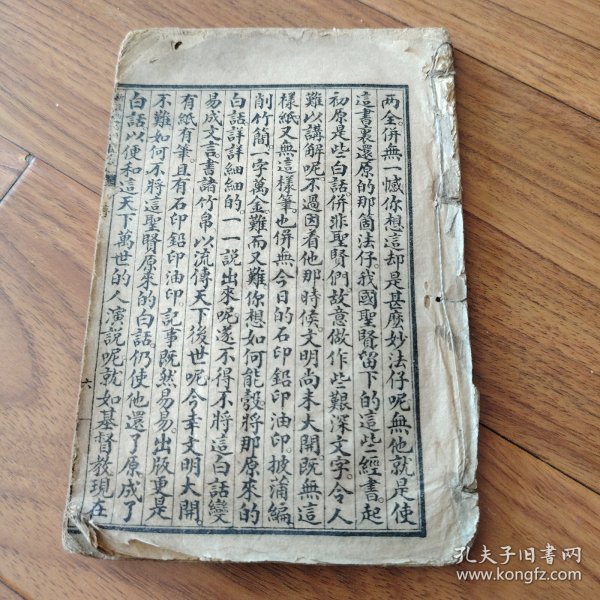 两全併無一憾你想這却是甚麽妙法仔呢無他就是使
這書裏還原的那箇法仔我國聖賢留下的這些經書起
初原是些白話併非聖賢們故意做作些艱深文字令人
難以講解呢不過因着他那時候文明尚未大開既無這
樣紙又無這樣筆也併無今日的石印鉛印油印披蒲編
削竹簡一字萬金難而又難你想如何能彀將那原來的
白話詳詳細細的一一説出來呢遂不得不將這白話變
易成文言書諸竹帛以流傳天下後世呢今幸文明大開
有紙有筆且有石印鉛印油印記事既然易易出版更是
不難如何不將這聖賢原來的白話仍使他還了原成了
白話以便和這天下萬世的人演説呢就如基督教現在
六
孔夫子旧書网
www.kongfz.com